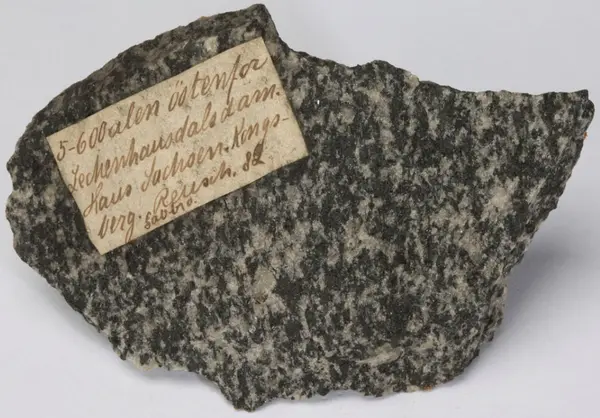 5-600 alen östenfor
Jechenhausdalsdam.
Haus Sachsen. Kongs-
berg. Reusch. 82
Gabbro.